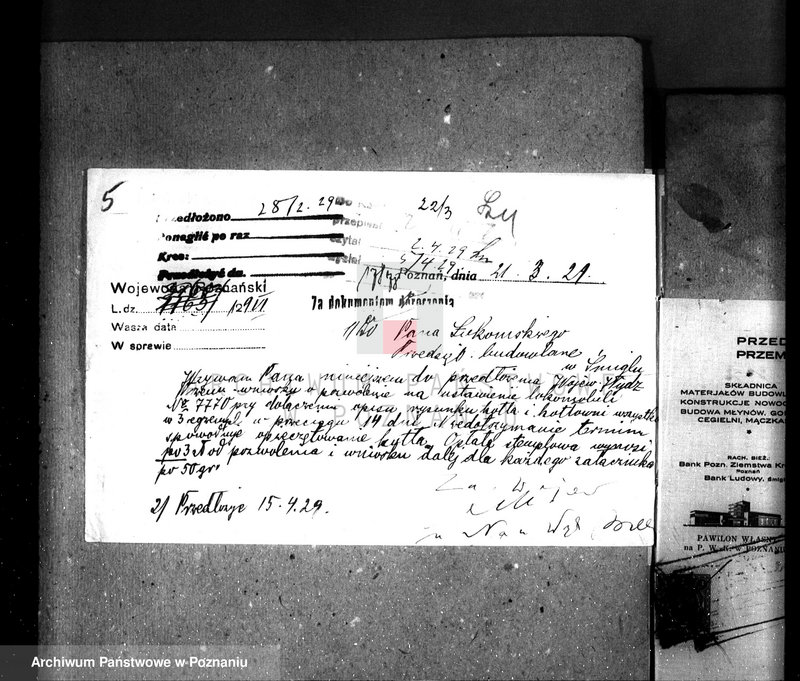 5
28/2. 29
22/3
Przedłożono
Ponaglić po raz
Kres:
Przedłożyć dn.
2.4.29
5/4 29
Poznań, dnia 21. 3. 29.
Wojewoda Poznański
L.dz. /29
Wasza data
W sprawie
Za dokumentem doręczenia
1/ Do Pana Łukomskiego
Przedsięb. budowlane
w Śmiglu
Wzywam Pana niniejszem do przedłożenia Wojew. Wydz
wniosku o pozwolenie na ustawienie lokomobili
Nr. 7770 przy dołączeniu opisu rysunku kotła i kotłowni wszystko
w 3 egzempl. w przeciągu 14 dni. Niedotrzymanie terminu
spowoduje opieczętowanie kotła. Opłata stemplowa wynosi
po 3 zł od pozwolenia i wniosku dalej dla każdego załącznika
po 50 gr.
Za Wojew
2/ Przedłożyć 15.4.29.
PRZED
PRZEM
SKŁADNICA
MATERJAŁÓW BUDOWL
KONSTRUKCJE NOWOC
BUDOWA MŁYNÓW, GO
CEGIELNI, MĄCZKA
RACH. BIEŻ.
Bank Pozn. Ziemstwa Kr
Poznań
Bank Ludowy, Śmig
PAWILON WŁASNY
na P. W. K. w POZNANIU
Archiwum Państwowe w Poznaniu